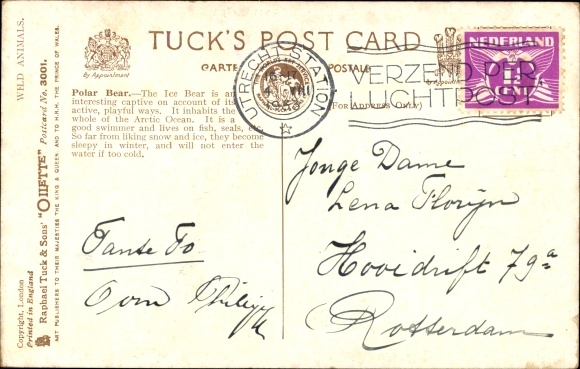 TUCK'S POST CARD
By Appointment
CARTE
POSTALE
(For Address Only)
Polar Bear.—The Ice Bear is an
interesting captive on account of its
active, playful ways. It inhabits the
whole of the Arctic Ocean. It is a
good swimmer and lives on fish, seals, etc.
So far from liking snow and ice, they become
sleepy in winter, and will not enter the
water if too cold.
UTRECHT-STATION
VIII
VERZEND PER
LUCHTPOST
NEDERLAND
CENT
Tante To
Oom Philipp
Jonge Dame
Lena Florijn
Hooidrift 79a
Rotterdam
WILD ANIMALS.
Raphael Tuck & Sons' "OILETTE" Postcard No. 3001.
ART PUBLISHERS TO THEIR MAJESTIES THE KING & QUEEN AND TO H.R.H. THE PRINCE OF WALES.
Copyright, London
Printed in England